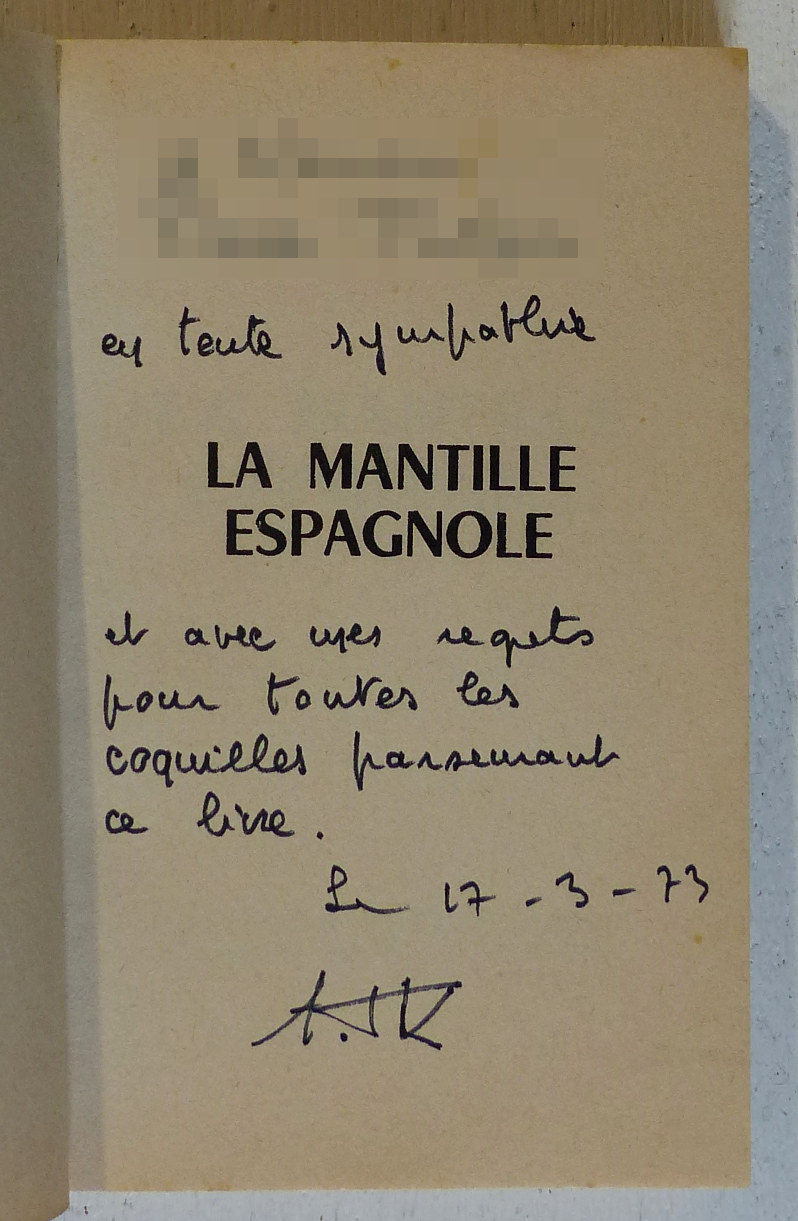 en toute sympathie
LA MANTILLE
ESPAGNOLE
et avec mes regrets
pour toutes les
coquilles parsemant
ce livre.
Le 17-3-73